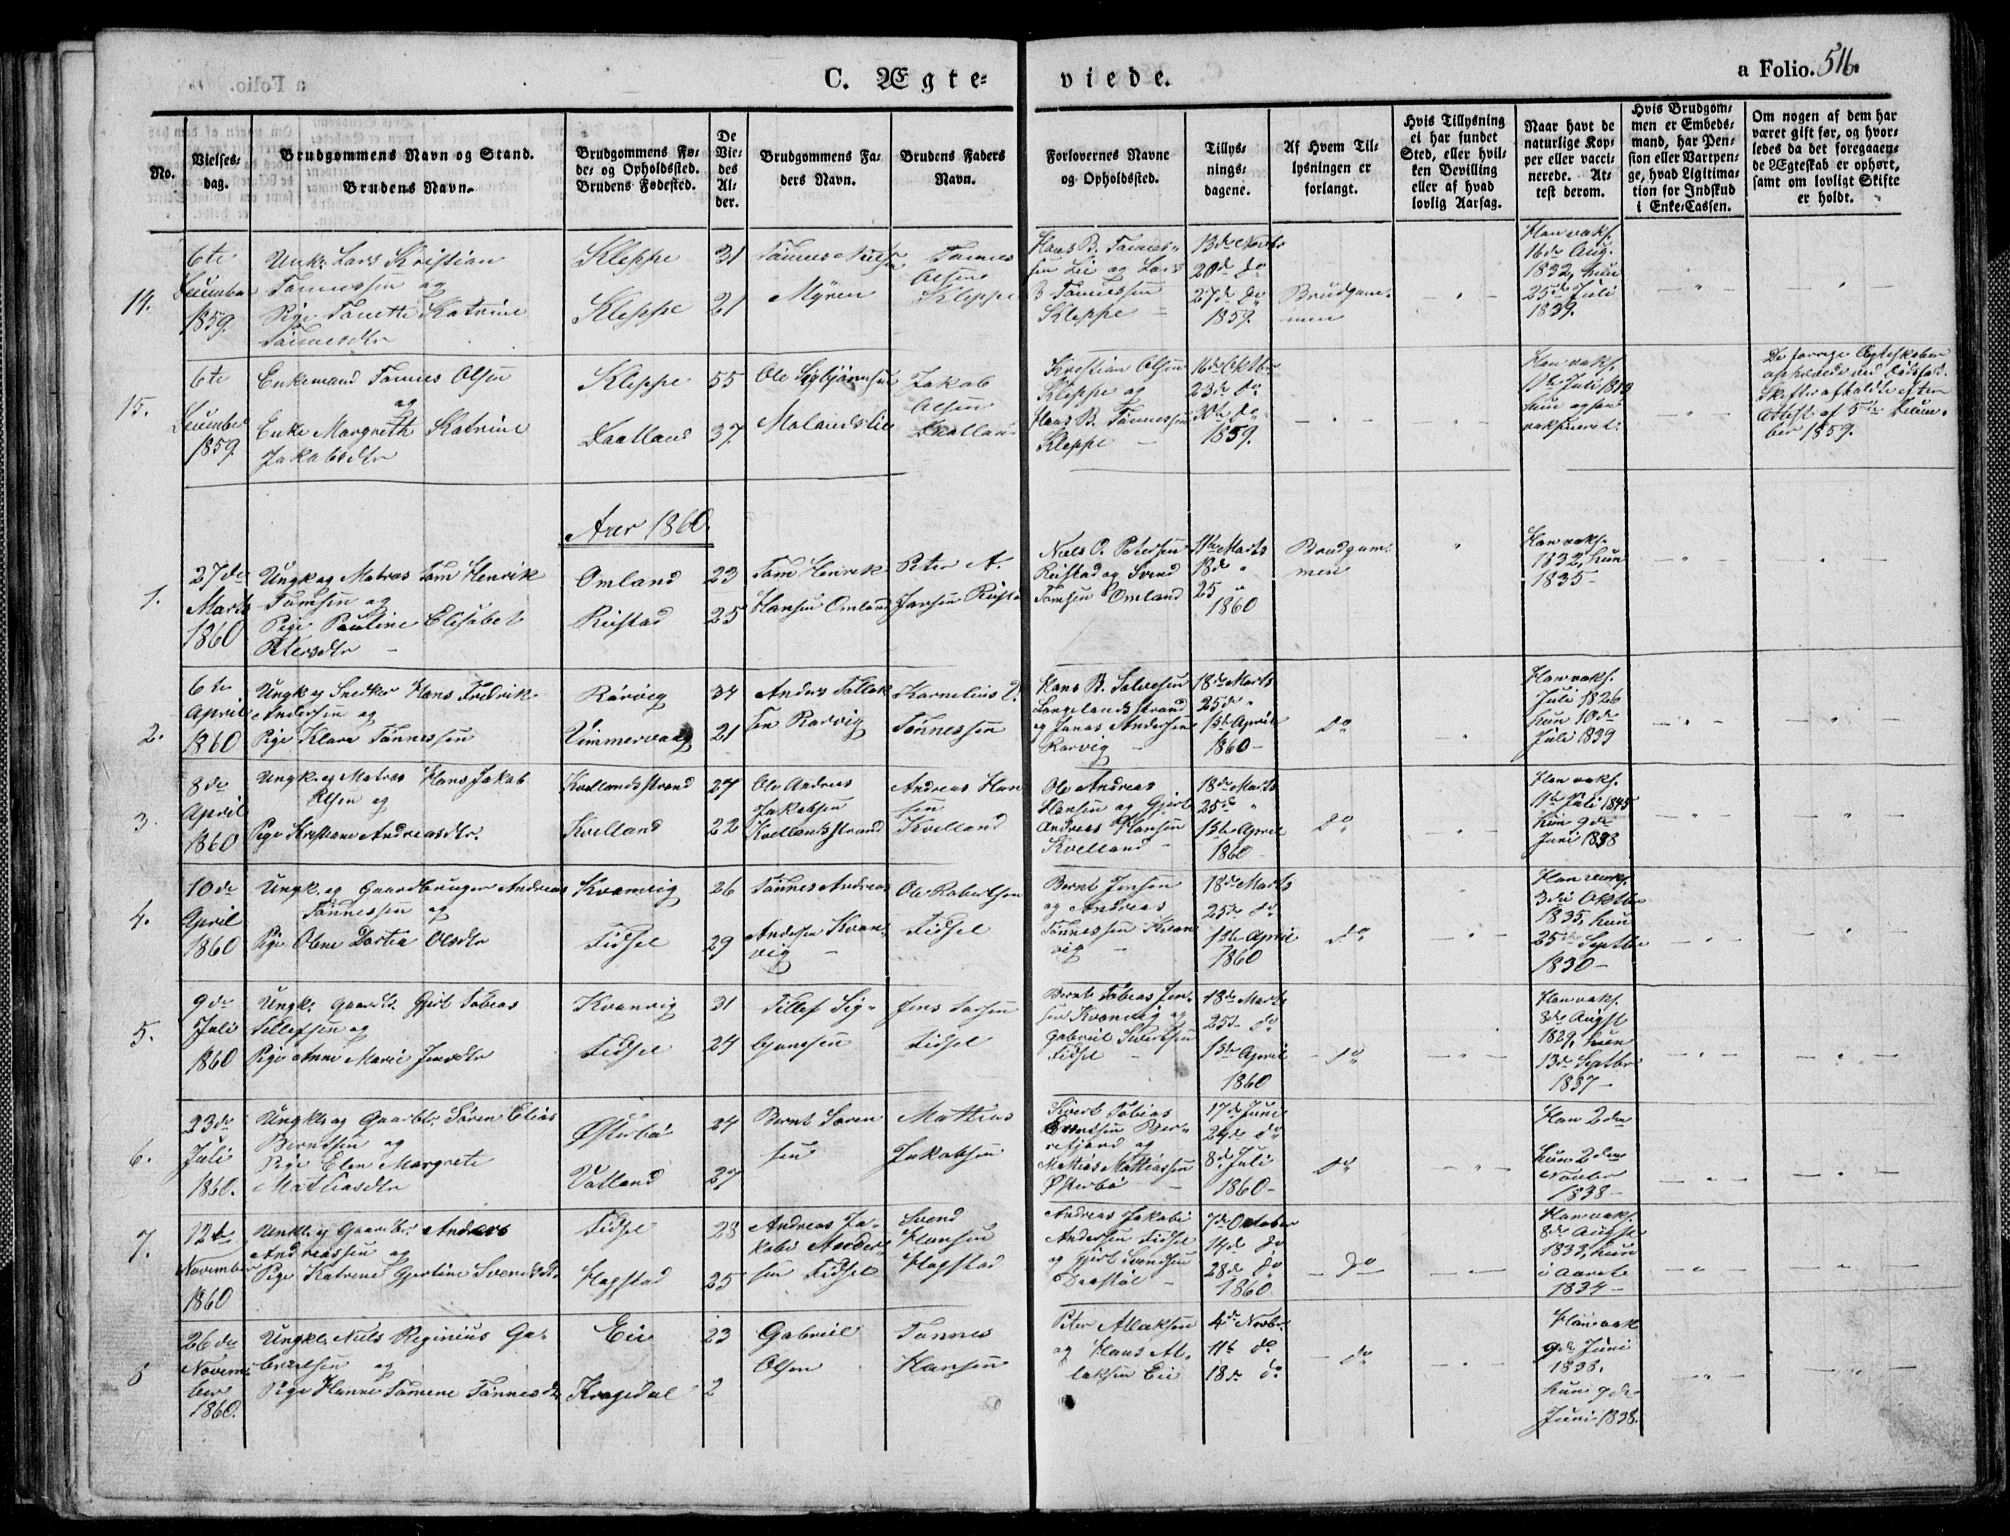 C. Ægte=
viede.
a Folio. 516.
No.
Vielses=
dag.
Brudgommens Navn og Stand.
Brudens Navn.
Brudgommens Fø=
de= og Opholdssted.
Brudens Fødested.
De
Vie=
des
Al=
der.
Brudgommens Fa=
ders Navn.
Brudens Faders
Navn.
Forlovernes Navne
og Opholdssted.
Tillys=
nings=
dagene.
Af Hvem Til=
lysningen er
forlangt.
Hvis Tillysning
ei har fundet
Sted, eller hvil=
ken Bevilling
eller af hvad
lovlig Aarsag.
Naar havt de
naturlige Kop=
per eller vacci=
nerede. At=
test derom.
Hvis Brudgom=
men er Embeds=
mand, har Pen=
sion eller Vartpen=
ge, hvad Ligitima=
tion for Indskud
i Enke=Cassen.
Om nogen af dem har
været gift før, og hvor=
ledes da det foregaaen=
de Ægteskab er ophørt,
samt om lovligt Skifte
er holdt.
14.
6te
December
1859.
Unk. Lars Kristian
Tønnessen og
Pige Tonette Katrine
Tønnesdtr
Kleppe
Kleppe
31
21
Tønnes
Myren
Tønnes
Olsen
Kleppe
Hans B. Tønnes=
sen Lie og Lars
B Tønnessen
Kleppe
13de Novbr
20de do
27de do
1859.
Brudgom=
men
Han vaks.
16de Aug.
1832, hun
25de Juli
1839.
15.
6te
December
1859
Enkemand Tønnes Olsen
og
Enke Margreth Katrine
Jakobsdtr
Kleppe
Laalland
55
37
Ole Sigbjørnsen
Jakob
Olsen
Laalland
Kristian Olsen
Kleppe og
Hans B. Tønnessen
Kleppe
16de Oktbr
23de do
30te do
1859.
Han vaks.
Juli
hun ogsaa
vaksineret.
De forrige Ægteskaber
ophævede ved Dødsfald.
Skifte afholdt efter
Attest af 5te Decem=
ber 1859.
Aaret 1860
1.
27de
Marts
1860
Ungk og Matros Tom Henrik
Tomsen og
Pige Pauline Elisabet
Petersdtr
Omland
Reistad
23
25
Tom Henrik
Hansen Omland
Peter A.
Jansen Reistad
Niels O. Petersen
Reistad og Svend
Tomsen Omland
11te Marts
18de "
25 "
1860
Brudgom=
men
Han vaks.
1832, hun
1835
2.
6te
April
1860
Ungk og Snedker Hans Fredrik
Andersen og
Pige Klara Tønnessen
Rørvig
Vimmervaag
34
21
Anders Tollak
sen Rørvig
Kornelius
Tønnessen
Hans B. Salvesen
Langelandsstrand
og Jonas Andersen
Rørvig
18de Marts
25de "
1ste April
1860
do
Han vaks.
Juli 1826
hun 10de
Juli 1839
3.
8de
April
1860
Ungk. og Matros Hans Jakob
Olsen og
Pige Kristiane Andreasdtr.
Kvellandsstrand
Kvelland
27
22
Ole Andreas
Jakobsen
Kvellandsstrand
Andreas Han
sen
Kvelland
Ole Andreas
Hansen og Gjert
Andreas Hansen
Kvelland
18de Marts
25de "
1ste April
1860
do
Han vaks.
Juli 1845
Hun 9de
Juni 1838
4.
10de
April
1860
Ungk. og Gaardbruger Andreas
Tønnessen og
Pige Olene Dortea Olsdtr
Kvanvig
Fidsel
26
29
Tønnes Andreas
Andersen Kvan=
vig
Ole Robertsen
Fidsel
Bernt Jensen
og Andreas
Tønnessen Kvan
vig
18de Marts
25de do
1ste April
1860
do
Han vaks.
3die Oktbr
1835, hun
25de Septbr
1830
5.
9de
Juli
1860
Ungk. Gaardb. Gjert Tobias
Tellefsen og
Pige Anne Marie Jensdtr
Kvanvig
Fidsel
31
24
Tellef Sig=
bjørnsen
Jens Larsen
Fidsel
Bernt Tobias Jen=
sen Kvanvig og
Gabriel Sivertsen
Fidsel
18de Marts
25de do
1ste April
1860
do
Han vaks.
8de Augst
1829, hun
13de Septbr
1837
6.
23de
Juli
1860.
Ungk. og Gaardbr. Søren Elias
Berntsen og
Pige Elen Margrete
Mathiasdtr
Østerbø
Valland
24
27
Bernt Søren
sen
Mathias
Jakobsen
Sivert Tobias
og
Mathias Mathiassen
Østerbø
17de Juni
24de do
8de Juli
1860
do
Han 2den
hun 2den
Novbr
1838
7.
12te
November
1860
Unkl. og Gaardbr. Anders
Andreassen og
Pige Katrine Gjertine Svendsdtr
Fidsel
Hagstad
28
25
Andreas Ja=
kobi Ander=
sen Fidsel
Svend
Hansen
Hagstad
Andreas Jakobi
Andersen Fidsel
og Gjert Svendsen
7de October
14de do
28de do
1860
do
Han vaks.
8de Augst
1833, hun
i Aaret
1834
8
26de
Novem=
ber
1860.
Ungkl. Niels Reginius Ga=
brielsen og
Pige Hanne Tomene Tønnesdtr
Eie
Kragedal
23
2
Gabriel
Olsen
Tønnes
Hansen
Peter Allaksen
og Hans Al=
laksen Eie
4de Novbr.
11te do
18de do
do
Han vak
9de Juni
1838.
hun 9de
Juni 1838.